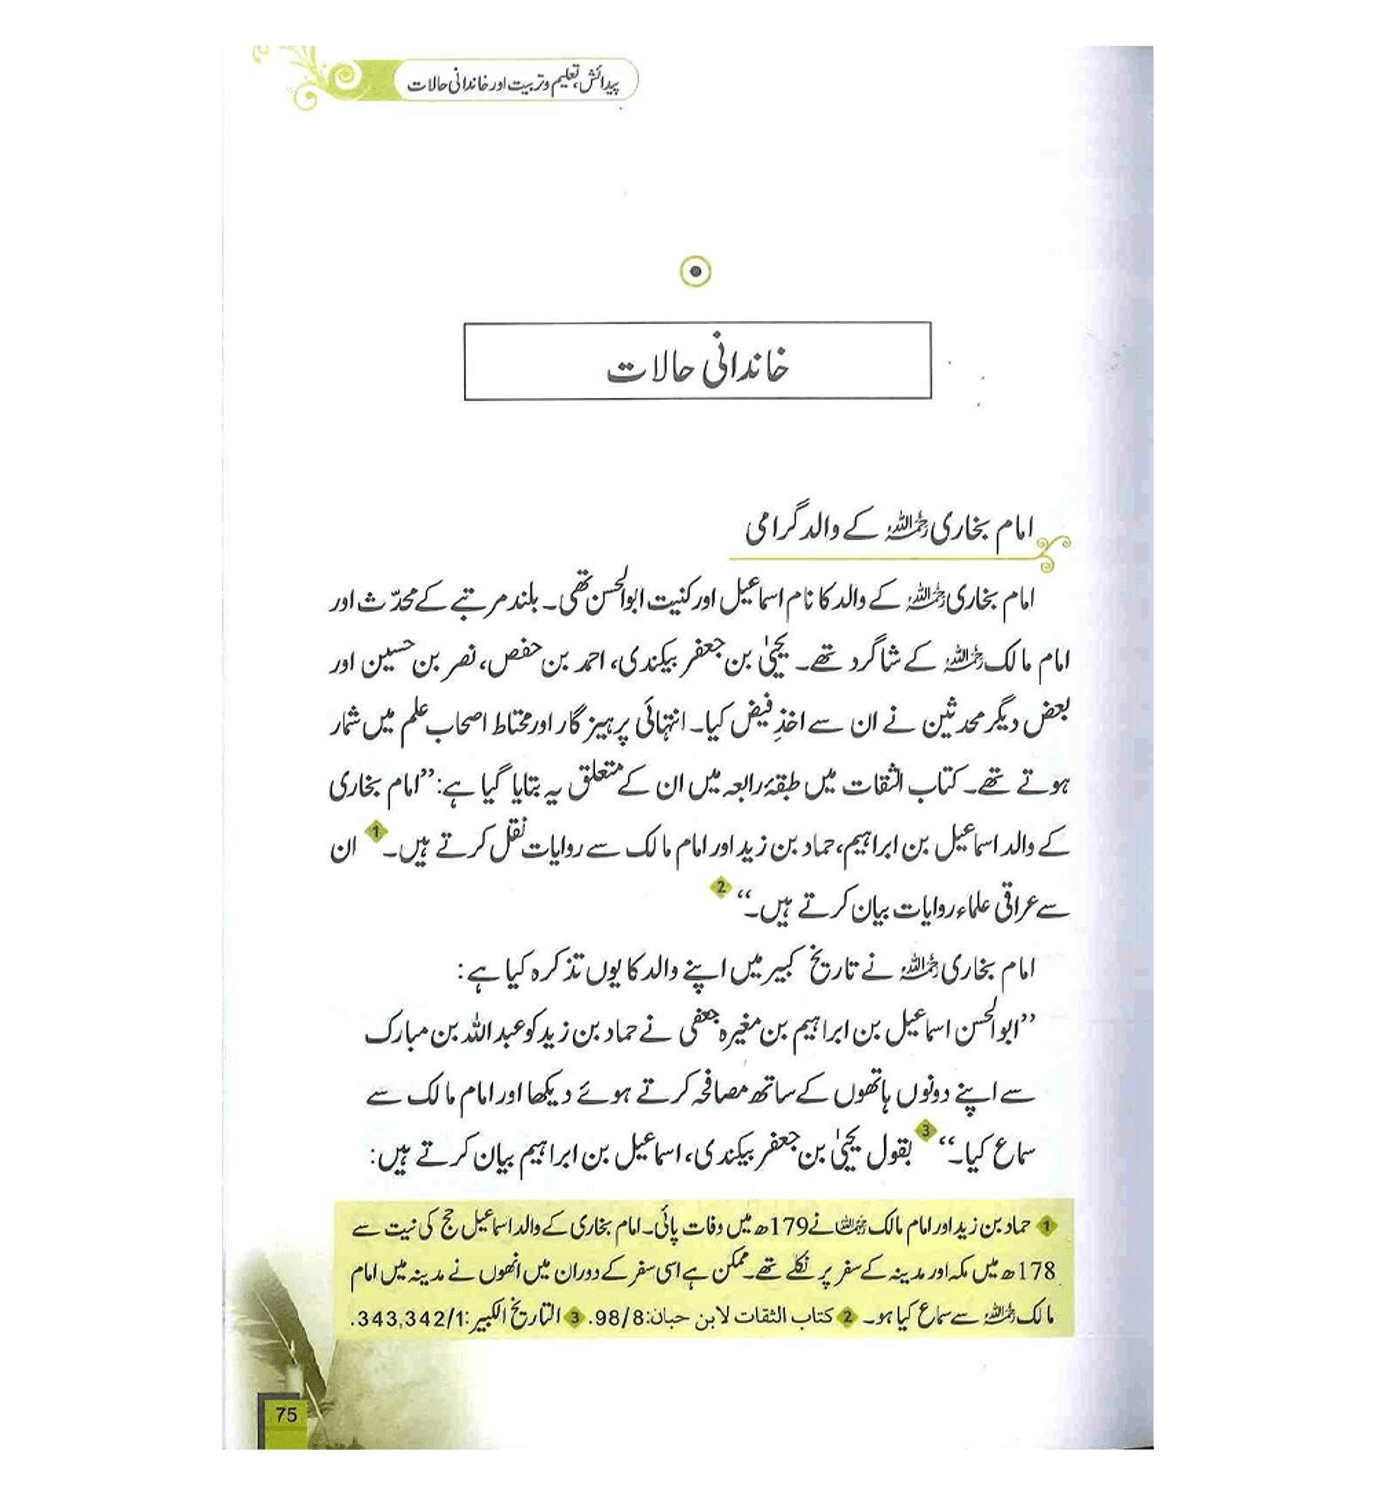 پیدائش، تعلیم و تربیت اور خاندانی حالات
خاندانی حالات
امام بخاری رحمہ اللہ کے والد گرامی
امام بخاری رحمہ اللہ کے والد کا نام اسماعیل اور کنیت ابوالحسن تھی۔ بلند مرتبے کے محدّث اور
امام مالک رحمہ اللہ کے شاگرد تھے۔ یحییٰ بن جعفر بیکندی، احمد بن حفص، نصر بن حسین اور
بعض دیگر محدثین نے ان سے اخذِ فیض کیا۔ انتہائی پرہیز گار اور محتاط اصحاب علم میں شمار
ہوتے تھے۔ کتاب الثقات میں طبقۂ رابعہ میں ان کے متعلق یہ بتایا گیا ہے: ”امام بخاری
کے والد اسماعیل بن ابراہیم، حماد بن زید اور امام مالک سے روایات نقل کرتے ہیں۔ 1 ان
سے عراقی علماء روایات بیان کرتے ہیں۔“ 2
امام بخاری رحمہ اللہ نے تاریخ کبیر میں اپنے والد کا یوں تذکرہ کیا ہے:
”ابوالحسن اسماعیل بن ابراہیم بن مغیرہ جعفی نے حماد بن زید کو عبداللہ بن مبارک
سے اپنے دونوں ہاتھوں کے ساتھ مصافحہ کرتے ہوئے دیکھا اور امام مالک سے
سماع کیا۔“ 3 بقول یحییٰ بن جعفر بیکندی، اسماعیل بن ابراہیم بیان کرتے ہیں:
1 حماد بن زید اور امام مالک رحمہما اللہ نے 179ھ میں وفات پائی۔ امام بخاری کے والد اسماعیل حج کی نیت سے
178ھ میں مکہ اور مدینہ کے سفر پر نکلے تھے۔ ممکن ہے اسی سفر کے دوران میں انھوں نے مدینہ میں امام
مالک رحمہ اللہ سے سماع کیا ہو۔ 2 کتاب الثقات لابن حبان: 98/8. 3 التاریخ الکبیر: 343,342/1.
75